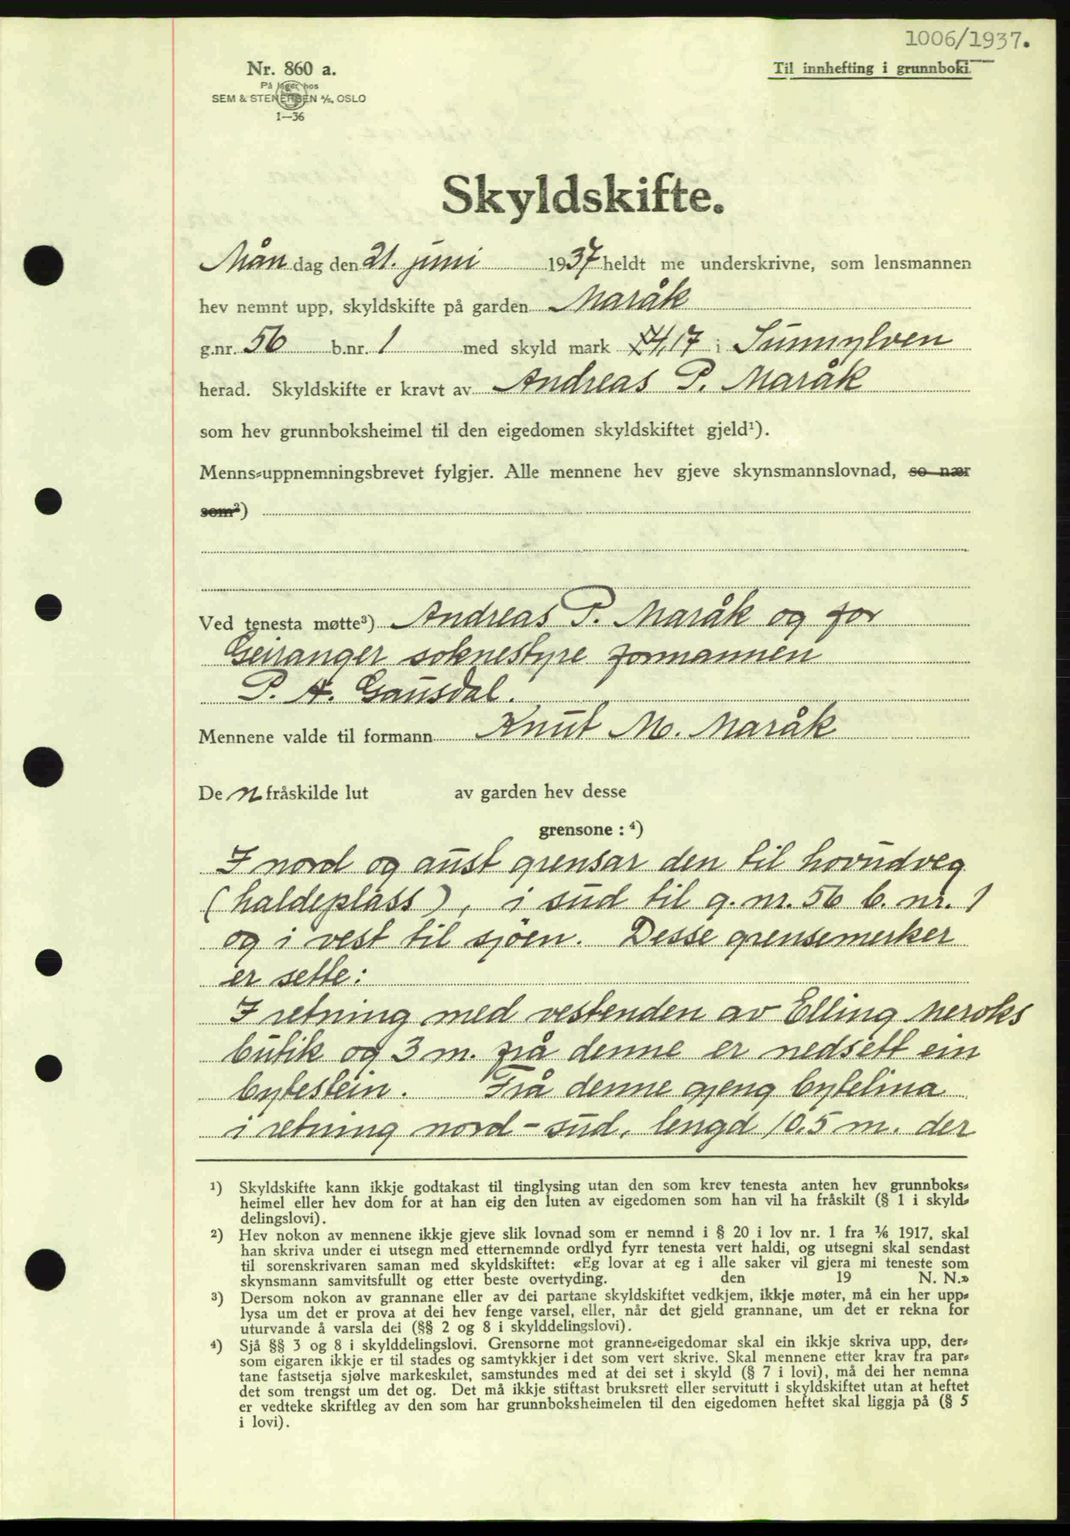 1006/1937.
Nr. 860 a.
Til innhefting i grunnboki.
På lager hos
SEM & STENERSEN A/S, OSLO
1—36
Skyldskifte.
Mån dag den 21. juni 1937 heldt me underskrivne, som lensmannen
hev nemnt upp, skyldskifte på garden Maråk
g.nr. 56 b.nr. 1 med skyld mark 4,17 i Sunnylven
herad. Skyldskifte er kravt av Andreas P. Maråk
som hev grunnboksheimel til den eigedomen skyldskiftet gjeld¹).
Menns-uppnemningsbrevet fylgjer. Alle mennene hev gjeve skynsmannslovnad, so nær
som²)
Ved tenesta møtte³) Andreas P. Maråk og for
Geiranger soknestyre formannen
P. A. Gausdal.
Mennene valde til formann Knut M. Maråk
De n fråskilde lut av garden hev desse
grensone : ⁴)
I nord og aust grensar den til hovudveg
(haldeplass), i sud til g.nr. 56 b.nr. 1
og i vest til sjöen. Desse grensemerker
er sette:
I retning med vestenden av Elling Meroks
butik og 3 m. frå denne er nedsett ein
bytestein. Frå denne gjeng bytelina
i retning nord - sud, lengd 10.5 m. der
¹) Skyldskifte kann ikkje godtakast til tinglysing utan den som krev tenesta anten hev grunnboks-
heimel eller hev dom for at han eig den luten av eigedomen som han vil ha fråskilt (§ 1 i skyld-
delingslovi).
²) Hev nokon av mennene ikkje gjeve slik lovnad som er nemnd i § 20 i lov nr. 1 fra 1/6 1917, skal
han skriva under ei utsegn med etternemnde ordlyd fyrr tenesta vert haldi, og utsegni skal sendast
til sorenskrivaren saman med skyldskiftet: «Eg lovar at eg i alle saker vil gjera mi teneste som
skynsmann samvitsfullt og etter beste overtyding. den 19 N. N.»
³) Dersom nokon av grannane eller av dei partane skyldskiftet vedkjem, ikkje møter, må ein her upp-
lysa um det er prova at dei hev fenge varsel, eller, når det gjeld grannane, um det er rekna for
uturvande å varsla dei (§§ 2 og 8 i skylddelingslovi).
⁴) Sjå §§ 3 og 8 i skylddelingslovi. Grensorne mot granne-eigedomar skal ein ikkje skriva upp, der-
som eigaren ikkje er til stades og samtykkjer i det som vert skrive. Skal mennene etter krav fra par-
tane fastsetja sjølve markeskilet, samstundes med at dei set i skyld (§ 7 i lovi), må dei her nemna
det som trengst um det og. Det må ikkje stiftast bruksrett eller servitutt i skyldskiftet utan at heftet
er vedteke skriftleg av den som har grunnboksheimelen til den eigedomen heftet skal liggja på (§ 5
i lovi).